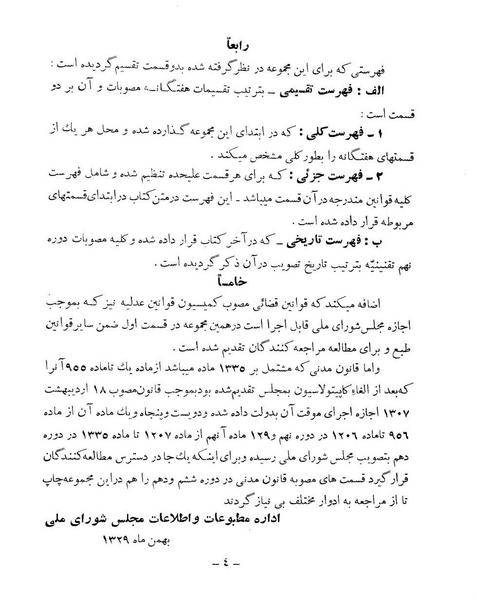 رابعاً
فهرستی که برای این مجموعه در نظر گرفته شده بدو قسمت تقسیم گردیده است :
الف : فهرست تقسیمی ـ بترتیب تقسیمات هفتگانه مصوبات و آن بر دو
قسمت است :
۱ ـ فهرست کلی : که در ابتدای این مجموعه گذارده شده و محل هر یك از
قسمتهای هفتگانه را بطور کلی مشخص میکند .
۲ ـ فهرست جزئی : که برای هر قسمت علیحده تنظیم شده و شامل فهرست
کلیه قوانین مندرجه در آن قسمت میباشد ـ این فهرست در متن کتاب در ابتدای قسمتهای
مربوطه قرار داده شده است .
ب : فهرست تاریخی ـ که در آخر کتاب قرار داده شده و کلیه مصوبات دوره
نهم تقنینیّه بترتیب تاریخ تصویب در آن ذکر گردیده است .
خامساً
اضافه میکند که قوانین قضائی مصوب کمیسیون قوانین عدلیه نیز که بموجب
اجازه مجلس شورای ملی قابل اجرا است در همین مجموعه در قسمت اول ضمن سایر قوانین
طبع و برای مطالعه مراجعه کنندگان تقدیم شده است .
واما قانون مدنی که مشتمل بر ۱۳۳۵ ماده میباشد از ماده یك تا ماده ۹۵۵ آنرا
که بعد از الغاء کاپیتولاسیون بمجلس تقدیم شده بود بموجب قانون مصوب ۱۸ اردیبهشت
۱۳۰۷ اجازه اجرای موقت آن بدولت داده شده و دویست و پنجاه و یك ماده آن از ماده
۹۵۶ تا ماده ۱۲۰۶ در دوره نهم و ۱۲۹ ماده آنهم از ماده ۱۲۰۷ تا ماده ۱۳۳۵ در دوره
دهم بتصویب مجلس شورای ملی رسیده و برای اینکه یك جا در دسترس مطالعه کنندگان
قرار گیرد قسمت های مصوبه قانون مدنی در دوره ششم و دهم را هم در این مجموعه چاپ
تا از مراجعه به ادوار مختلف بی نیاز گردند
اداره مطبوعات و اطلاعات مجلس شورای ملی
بهمن ماه ۱۳۲۹
ـ ٤ ـ